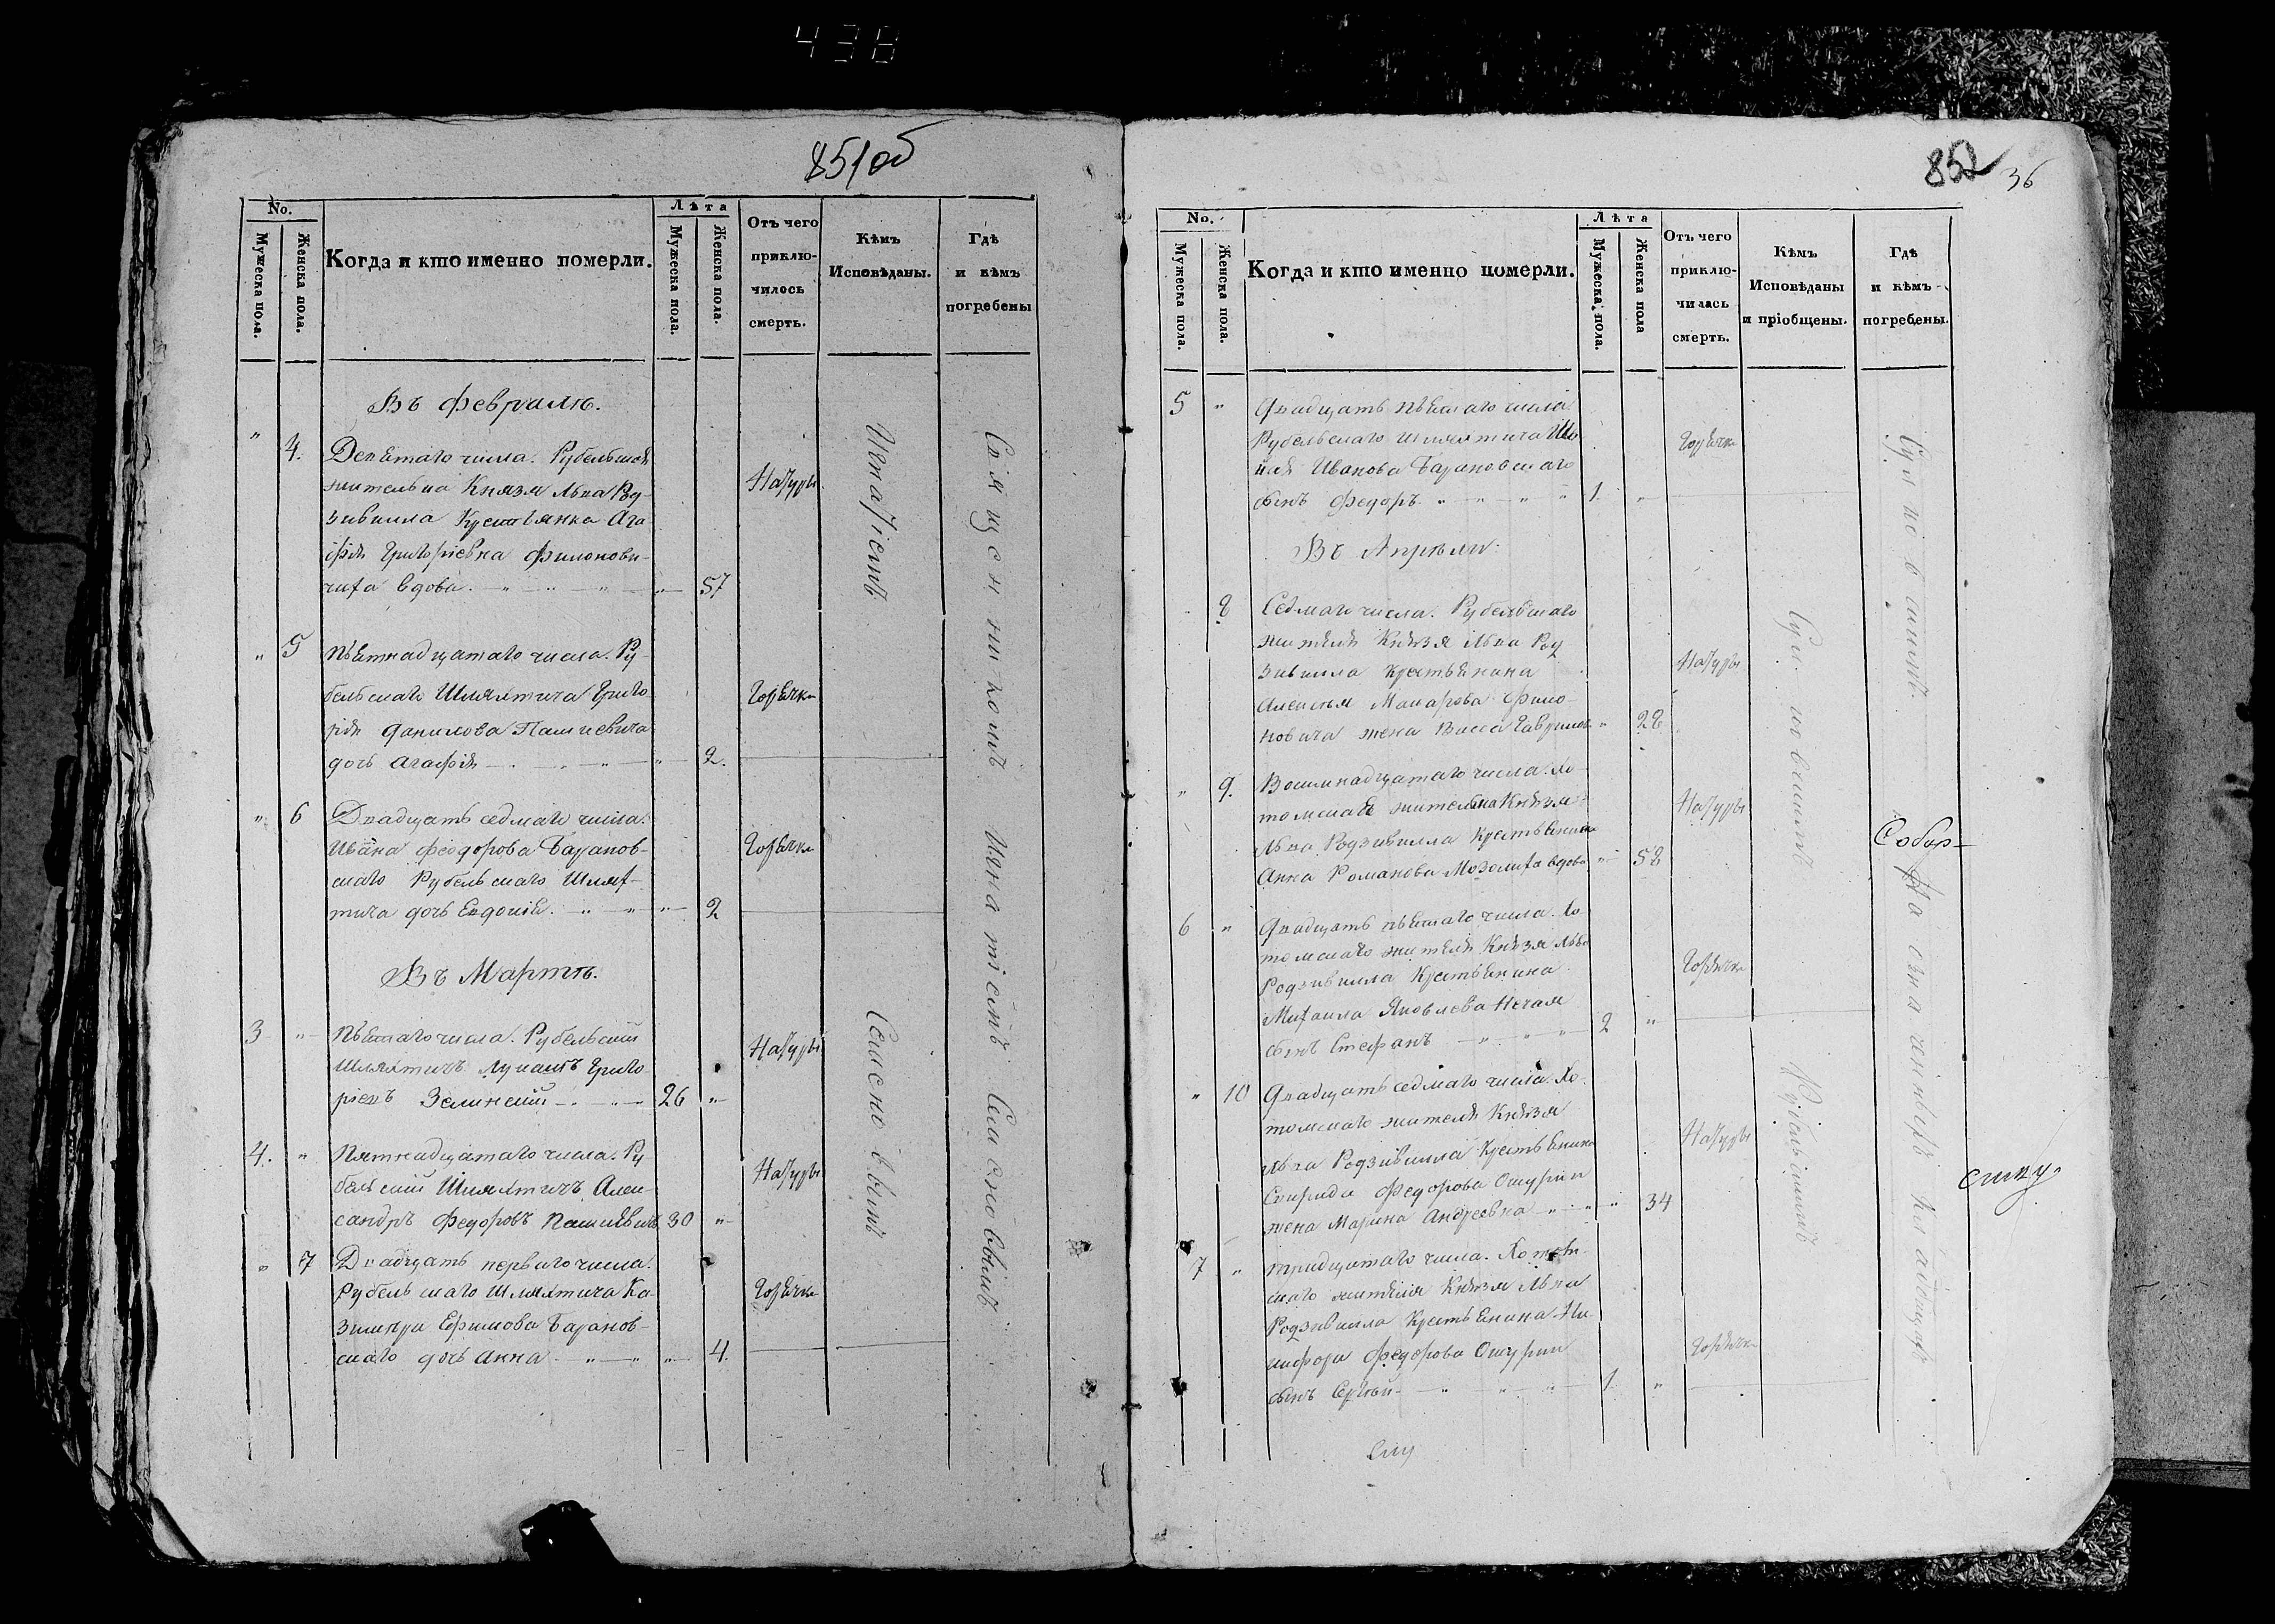 438
851об
No.
Мужеска пола.
Женска пола.
Когда и кто именно померли.
Лѣта
Мужеска пола.
Женска пола.
Отъ чего приклю-
чилось
смерть.
Кѣмъ
Исповѣданы.
Гдѣ
и кѣмъ
погребены
Въ Февралѣ.
" 4. Девѣтаго числа. Рубельская
жительна Князя Льва Род-
зивилла Крестьянка Ага
фія Григоріевна Филонови-
чиха вдова. " " " 57
Натуры
" 5 Пѣтнадцатаго числа. Ру-
бельскаго Шляхтича Григо-
рія Данилова Пашкевича
дочь Агафія " 2.
Горѣчка
" 6 Двадцать седмаго числа.
Ивана Феодорова Баранов-
скаго Рубельскаго Шлях-
тича дочь Евдокія. " " " 2
Горѣчка
Въ Мартѣ.
3 " Пѣтаго числа. Рубельскій
Шляхтичъ Лукашъ Григо-
ріевъ Зелинскій 26 "
Натуры
4. " Пятнадцатаго числа. Ру
бельскій Шляхтичъ Алек-
сандръ Федоровъ Пашкевичъ 30 "
Натуры
" 7 Двадцать перваго числа.
Рубельскаго Шляхтича Ка-
зимира Ефимова Баранов-
скаго дочь Анна " " 4.
Горѣчка
Священникомъ Игнатіемъ Сенсковымъ
Игнатіемъ
852 36
No.
Мужеска пола.
Женска пола.
Когда и кто именно померли.
Лѣта
Мужеска пола.
Женска пола
Отъ чего
приклю-
чилась
смерть.
Кѣмъ
Исповѣданы
и пріобщены.
Гдѣ
и кѣмъ
погребены.
5 " Двадцать пѣтаго числа
Рубельскаго шляхтича
Иванова Барановскаго
сынъ Федоръ " " " " 1. "
Горѣчка
Въ Апрѣли
" 8 Седмаго числа. Рубельскаго
жителя Князя Льва Род
зивилла Крестьѣнина
Алексѣя Макарова Фило-
новича жена Васса Гаврилов " 28
Натуры
" 9. Восимнадцатаго числа. Хо-
томская жительна Князя
Льва Родзивилла Крестьѣнка
Анна Романова вдова " 58
Натуры
6 " Двадцать пѣтаго числа. Хо-
томскаго жителя Князя Льва
Родзивилла Крестьѣнина
Михаила Яковлева Нечая
сынъ Стефанъ " " " 2 "
Горѣчка
" 10 Двадцать седмаго числа Хо-
томскаго жителя Князя
Льва Родзивилла Крестьѣнина
Спирида Федорова
жена Марина Андреевна " " " 34
Натуры
7 " Тридцатаго числа. Хотом-
скаго жителя Князя Льва
Родзивилла Крестьѣнина Ни-
кифора Федорова
сынъ Сергѣй " " " 1 "
Горѣчка
На
Собор-